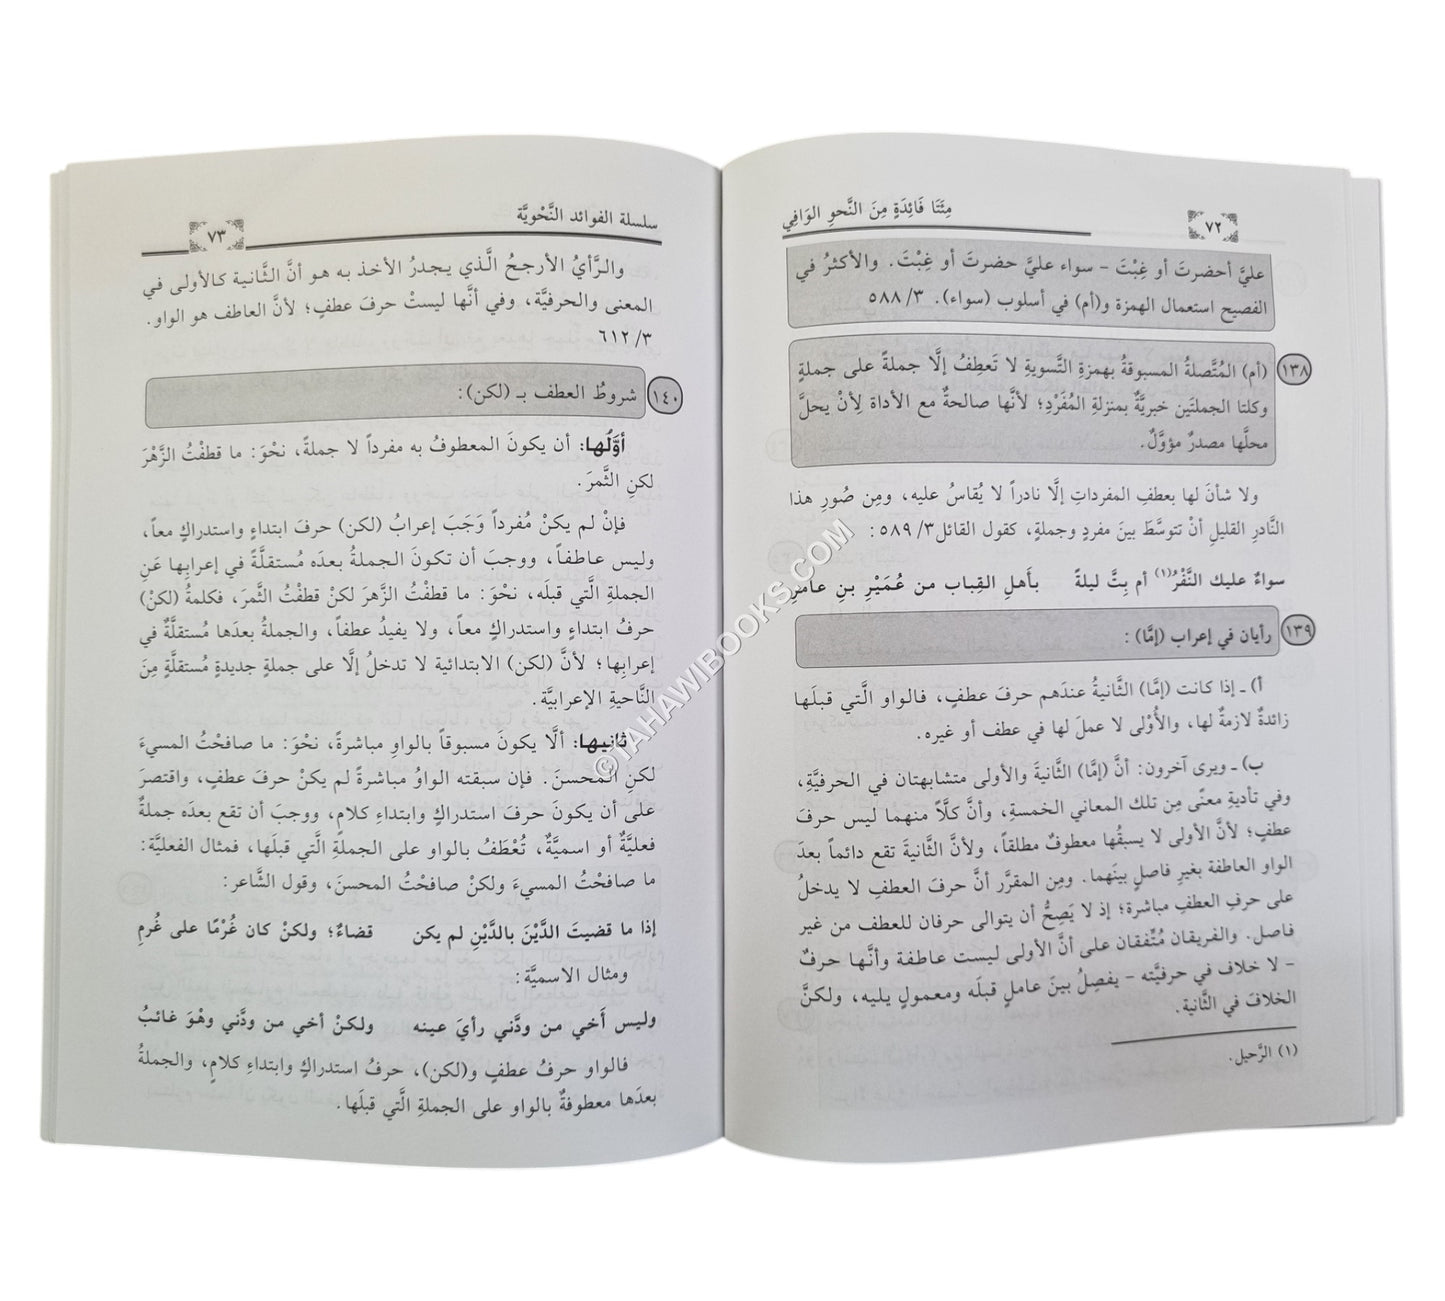 ٧٢
مِئَتَا فَائِدَةٍ مِنَ النَّحوِ الوَافِي
عليَّ أحضرتَ أو غِبْتَ - سواء عليَّ حضرتَ أو غِبْتَ. والأكثرُ في
الفصيح استعمال الهمزة و(أم) في أسلوب (سواء). ٣/ ٥٨٨
١٣٨
(أم) المُتَّصلةُ المسبوقةُ بهمزةِ التَّسويةِ لا تَعطِفُ إلَّا جملةً على جملةٍ
وكلتا الجملتَين خبريَّةٌ بمنزلةِ المُفَرْدِ؛ لأنَّها صالحةٌ مع الأداة لِأنْ يحلَّ
محلَّها مصدرٌ مؤوَّلٌ.
ولا شأنَ لها بعطفِ المفرداتِ إلَّا نادراً لا يُقاسُ عليه، ومِن صُورِ هذا
النَّادرِ القليلِ أنْ تتوسَّطَ بينَ مفردٍ وجملةٍ، كقول القائل ٣/ ٥٨٩ :
سواءٌ عليك النَّفْرُ(١) أم بِتَّ ليلةً بأَهلِ القِباب من عُمَيْرِ بنِ عامرِ
١٣٩
رأيان في إعراب (إمَّا) :
أ) ـ إذا كانت (إمَّا) الثَّانيةُ عندَهم حرفَ عطفٍ، فالواو الَّتي قبلَها
زائدةٌ لازمةٌ لها، والأُوْلى لا عملَ لها في عطف أو غيره.
ب) ـ ويرى آخرون: أنَّ (إمَّا) الثَّانيةَ والأولى متشابهتان في الحرفيَّةِ،
وفي تأديةِ معنًى مِن تلك المعاني الخمسةِ، وأنَّ كلًّا منهما ليس حرفَ
عطفٍ؛ لأنَّ الأولى لا يسبقُها معطوفٌ مطلقاً، ولأنَّ الثَّانيةَ تقع دائماً بعدَ
الواو العاطفة بغيرِ فاصلٍ بينَهما. ومِن المقرَّر أنَّ حرفَ العطفِ لا يدخلُ
على حرفِ العطفِ مباشرة؛ إذ لا يَصِحُّ أن يتوالى حرفان للعطف من غير
فاصل. والفريقان مُتَّفقان على أنَّ الأولى ليست عاطفة وأنَّها حرفٌ
- لا خلاف في حرفيَّته - يفصِلُ بينَ عاملٍ قبلَه ومعمولٍ يليه، ولكنَّ
الخلافَ في الثَّانية.
(١) الرَّحيل.
سلسلة الفوائد النَّحْويَّة
٧٣
والرَّأيُ الأرجحُ الَّذي يجدرُ الأخذ به هو أنَّ الثَّانية كالأولى في
المعنى والحرفيَّة، وفي أنَّها ليستْ حرفَ عطفٍ؛ لأنَّ العاطف هو الواو.
٣/ ٦١٢
١٤٠
شروطُ العطف بـ (لكن):
أوَّلُها: أن يكونَ المعطوفُ به مفرداً لا جملةً، نحْوَ: ما قطفْتُ الزَّهْرَ
لكنِ الثَّمرَ.
فإنْ لم يكنْ مُفرداً وَجَبَ إعرابُ (لكن) حرفَ ابتداءٍ واستدراكٍ معاً،
وليس عاطفاً، ووجبَ أن تكونَ الجملةُ بعدَه مُستقلَّةً في إعرابِها عَنِ
الجملةِ الَّتي قبلَه، نحْوَ: ما قطفْتُ الزَّهرَ لكنْ قطفْتُ الثَّمرَ، فكلمةُ (لكنْ)
حرفُ ابتداءٍ واستدراكٍ معاً، ولا يفيدُ عطفاً، والجملةُ بعدَها مُستقلَّةٌ في
إعرابِها؛ لأنَّ (لكن) الابتدائية لا تدخلُ إلَّا على جملةٍ جديدةٍ مُستقلَّةٍ مِنَ
النَّاحيةِ الإعرابيَّة.
ثانيها: ألَّا يكونَ مسبوقاً بالواوِ مباشرةً، نحْوَ: ما صافحْتُ المسيءَ
لكنِ المحسنَ. فإن سبقته الواوُ مباشرةً لم يكنْ حرفَ عطفٍ، واقتصرَ
على أن يكونَ حرفَ استدراكٍ وابتداءِ كلامٍ، ووجبَ أن تقع بعدَه جملةٌ
فعليَّةٌ أو اسميَّةٌ، تُعْطَفُ بالواو على الجملةِ الَّتي قبلَها، فمثال الفعليَّة:
ما صافحْتُ المسيءَ ولكنْ صافحْتُ المحسنَ، وقول الشَّاعر:
إذا ما قضيتَ الدَّيْنَ بالدَّيْنِ لم يكن قضاءٌ؛ ولكنْ كان غُرْمًا على غُرمِ
ومثال الاسميَّة:
وليس أَخي من ودَّني رأيَ عينه ولكنْ أخي من ودَّني وهْوَ غائبُ
فالواو حرفُ عطفٍ و(لكن)، حرفُ استدراكٍ وابتداءِ كلامٍ، والجملةُ
بعدَها معطوفةٌ بالواو على الجملةِ الَّتي قبلَها.
©TAHAWIBOOKS.COM